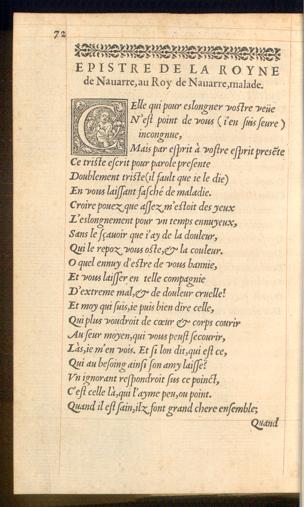 72
EPISTRE DE LA ROYNE
de Nauarre, au Roy de Nauarre, malade.
CElle qui pour eslongner vostre veüe
N'est point de vous (i'en suis seure)
incongnue,
Mais par esprit à vostre esprit presēte
Ce triste escrit pour parole presente
Doublement triste (il fault que ie le die)
En vous laissant fasché de maladie.
Croire pouez que assez m'estoit des yeux
L'eslongnement pour vn temps ennuyeux,
Sans le sçauoir que i'ay de la douleur,
Qui le repoz vous oste, & la couleur.
O quel ennuy d'estre de vous bannie,
Et vous laisser en telle compagnie
D'extreme mal, & de douleur cruelle!
Et moy qui suis, ie puis bien dire celle,
Qui plus voudroit de cœur & corps courir
Au seur moyen, qui vous peust secourir,
Làs, ie m'en vois. Et si lon dit, qui est ce,
Qui au besoing ainsi son amy laisse?
Vn ignorant respondroit sus ce poinct,
C'est celle là, qui l'ayme peu, ou point.
Quand il est sain, ilz font grand chere ensemble;
Quand